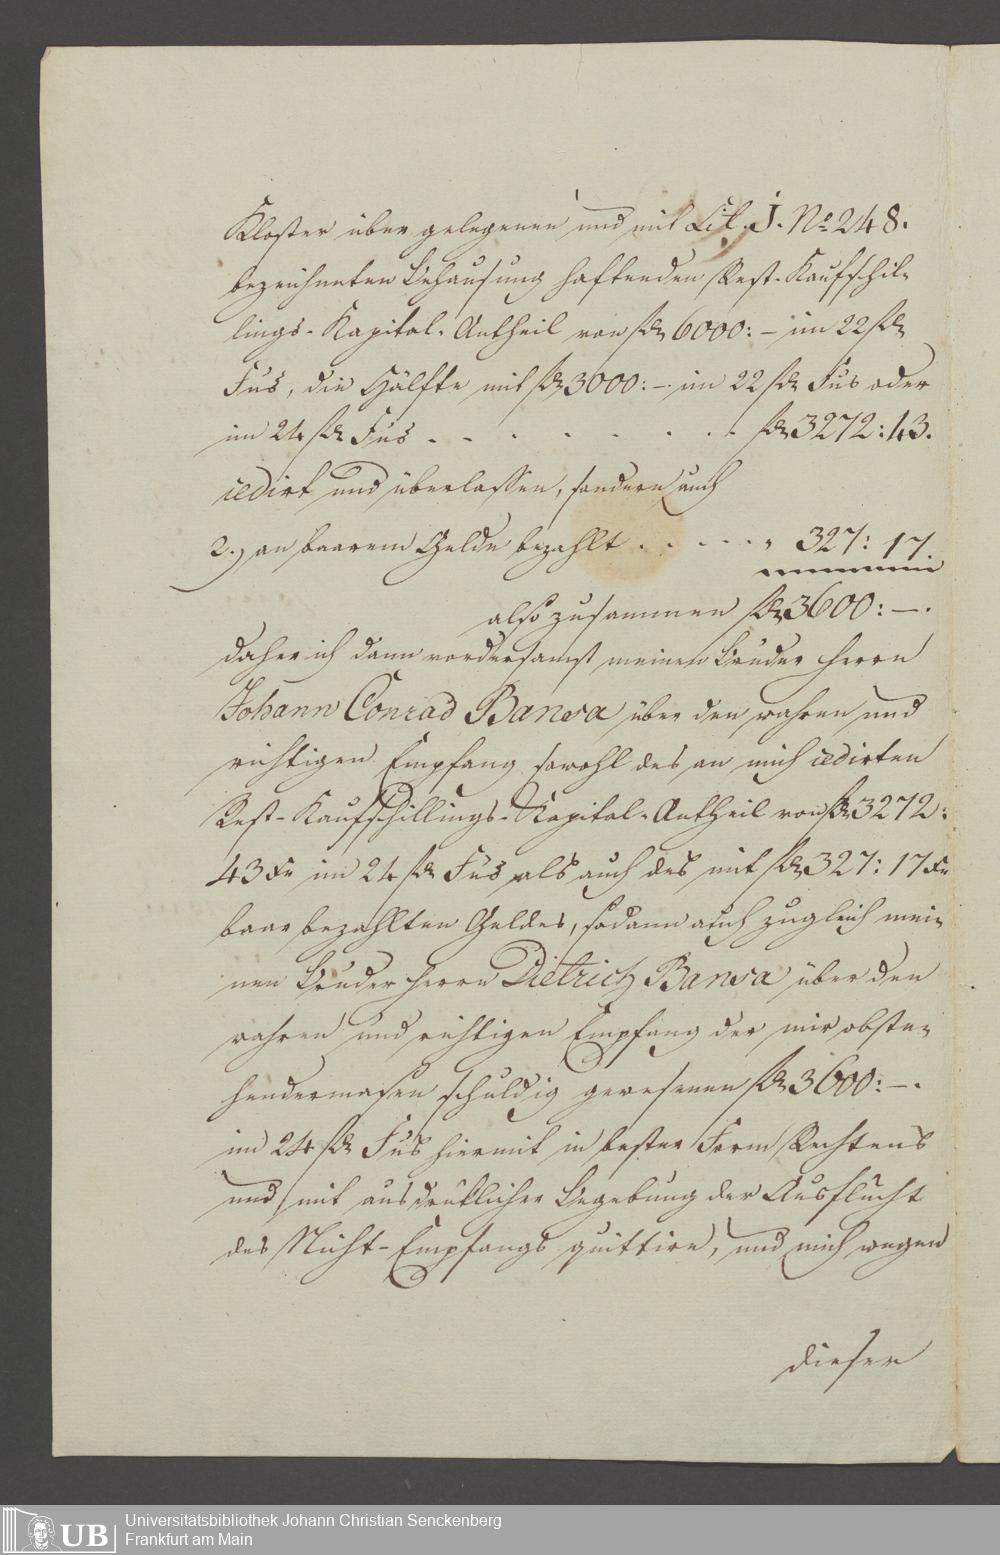 Kloster über gelegenen und mit Lit. J. No 248.
bezeichneten Behausung haftenden Rest-Kaufschil-
lings-Kapital-Antheil von fl 6000: – im 22 fl
Fus, die Hälfte mit fl 3000: –. im 22 fl Fus oder
im 24 fl Fus . . . . . . . . fl 3272: 43.
cedirt und überlassen, sondern auch
2.) an baarem Gelde bezahlt . . . . . „ 327: 17.
also zusammen fl 3600: –.
daher ich dann vordersamst meinen Bruder Herrn
Johann Conrad Bansa über den wahren und
richtigen Empfang sowohl des an mich cedirten
Rest-Kaufschillings-Kapital-Antheil von fl 3272:
43 Xr im 24 fl Fus als auch des mit fl 327: 17 Xr
baar bezahlten Geldes, sodann auch zugleich mei-
nen Bruder Herrn Dietrich Bansa über den
wahren und richtigen Empfang der mir obste-
hendermasen schuldig gewesenen fl 3600: –.
im 24 fl Fus hiermit in bester Form Rechtens
und mit ausdrüklicher Begebung der Ausflucht
des Nicht-Empfangs quittire, und mich wegen
dieser
UB
Universitätsbibliothek Johann Christian Senckenberg
Frankfurt am Main